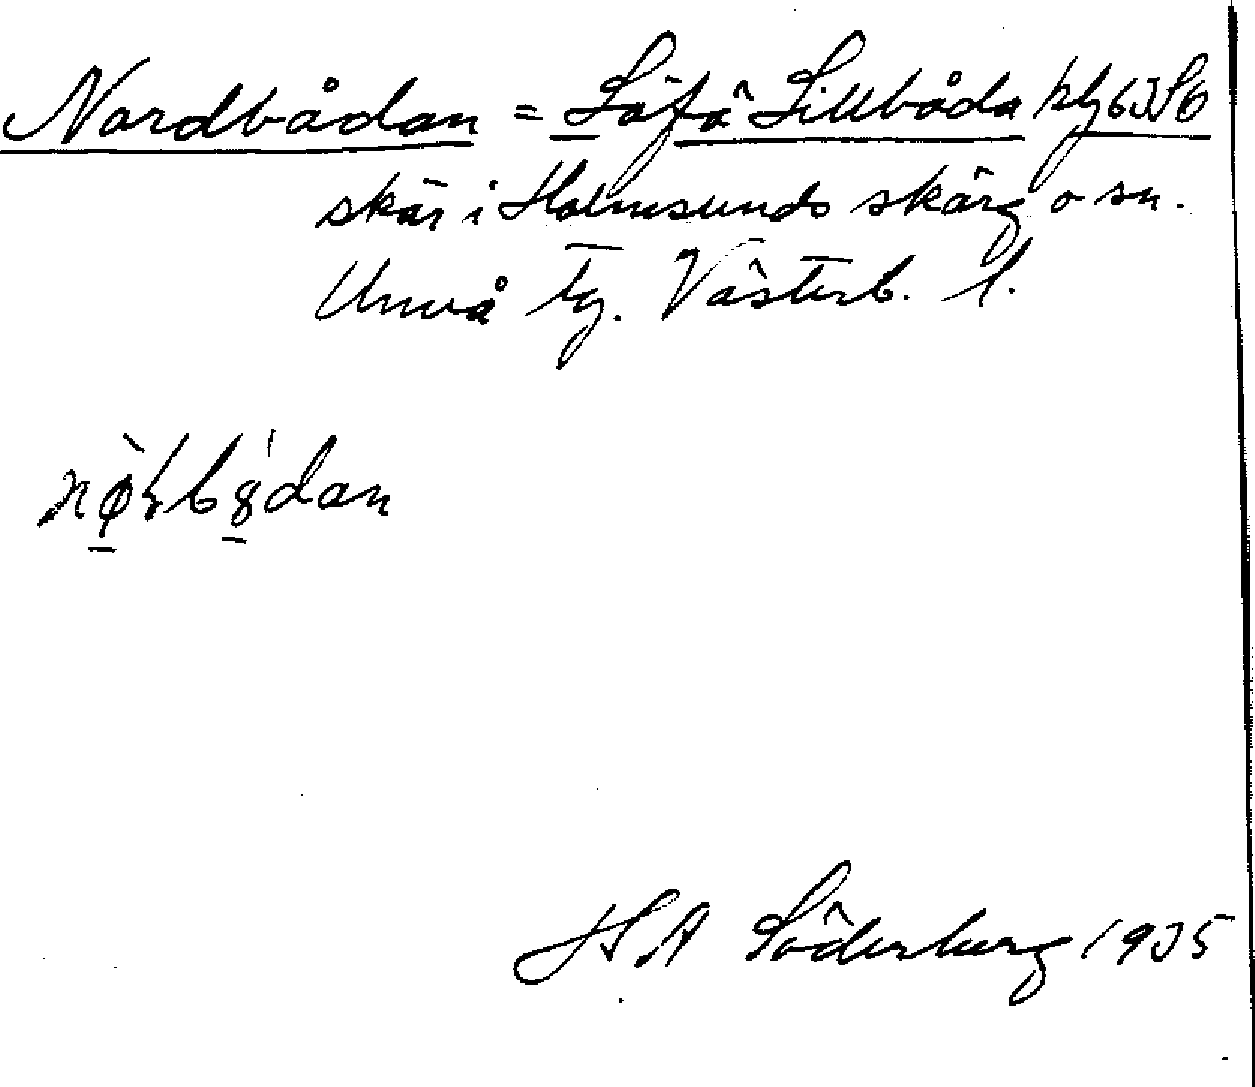 Nordbådan = Löfö Lillbåda plg63S6
skär i Holmsunds skärg o sn.
Umeå tg. Västerb. l.
bådan
H A Söderberg 1935